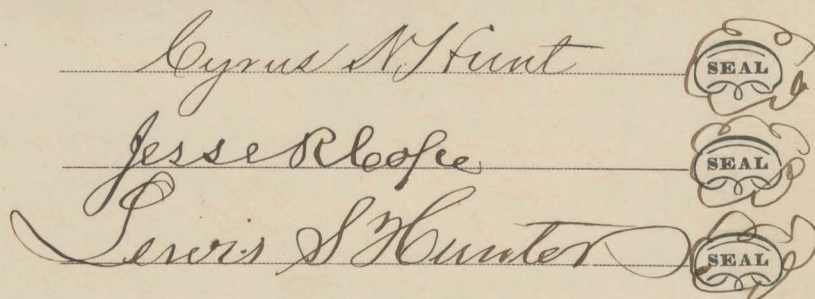 Cyrus N. Hunt SEAL
Jesse R Cope SEAL
Lewis S Hunter SEAL